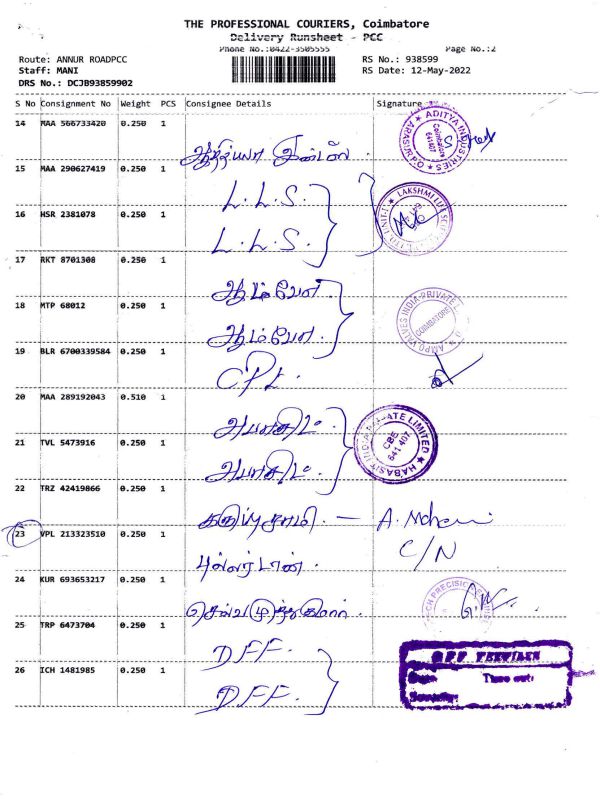 THE PROFESSIONAL COURIERS, Coimbatore
Delivery Runsheet - PCC
Phone No.:0422-3505555
Page No.:2
Route: ANNUR ROADPCC
RS No.: 938599
Staff: MANI
RS Date: 12-May-2022
DRS No.: DCJB93859902
S No Consignment No Weight PCS Consignee Details Signature
14 MAA 566733420 0.250 1
ADITYA INDUSTRIES
Coimbatore
641407
15 MAA 290627419 0.250 1
L.L.S.
16 HSR 2381078 0.250 1
L.L.S.
17 RKT 8701308 0.250 1
18 MTP 68012 0.250 1
AMPO VALVES INDIA PRIVATE
COIMBATORE
19 BLR 6700339584 0.250 1
CPL
20 MAA 289192043 0.510 1
HABASIT
LIMITED
CBE
641 407
21 TVL 5473916 0.250 1
22 TRZ 42419866 0.250 1
கருப்புசாமி - A. Mohan
23 VPL 213323510 0.250 1
C/N
24 KUR 693653217 0.250 1
செல்வமுத்துகுமார்
25 TRP 6473704 0.250 1
DFF.
Time out:
26 ICH 1481985 0.250 1
DFF.